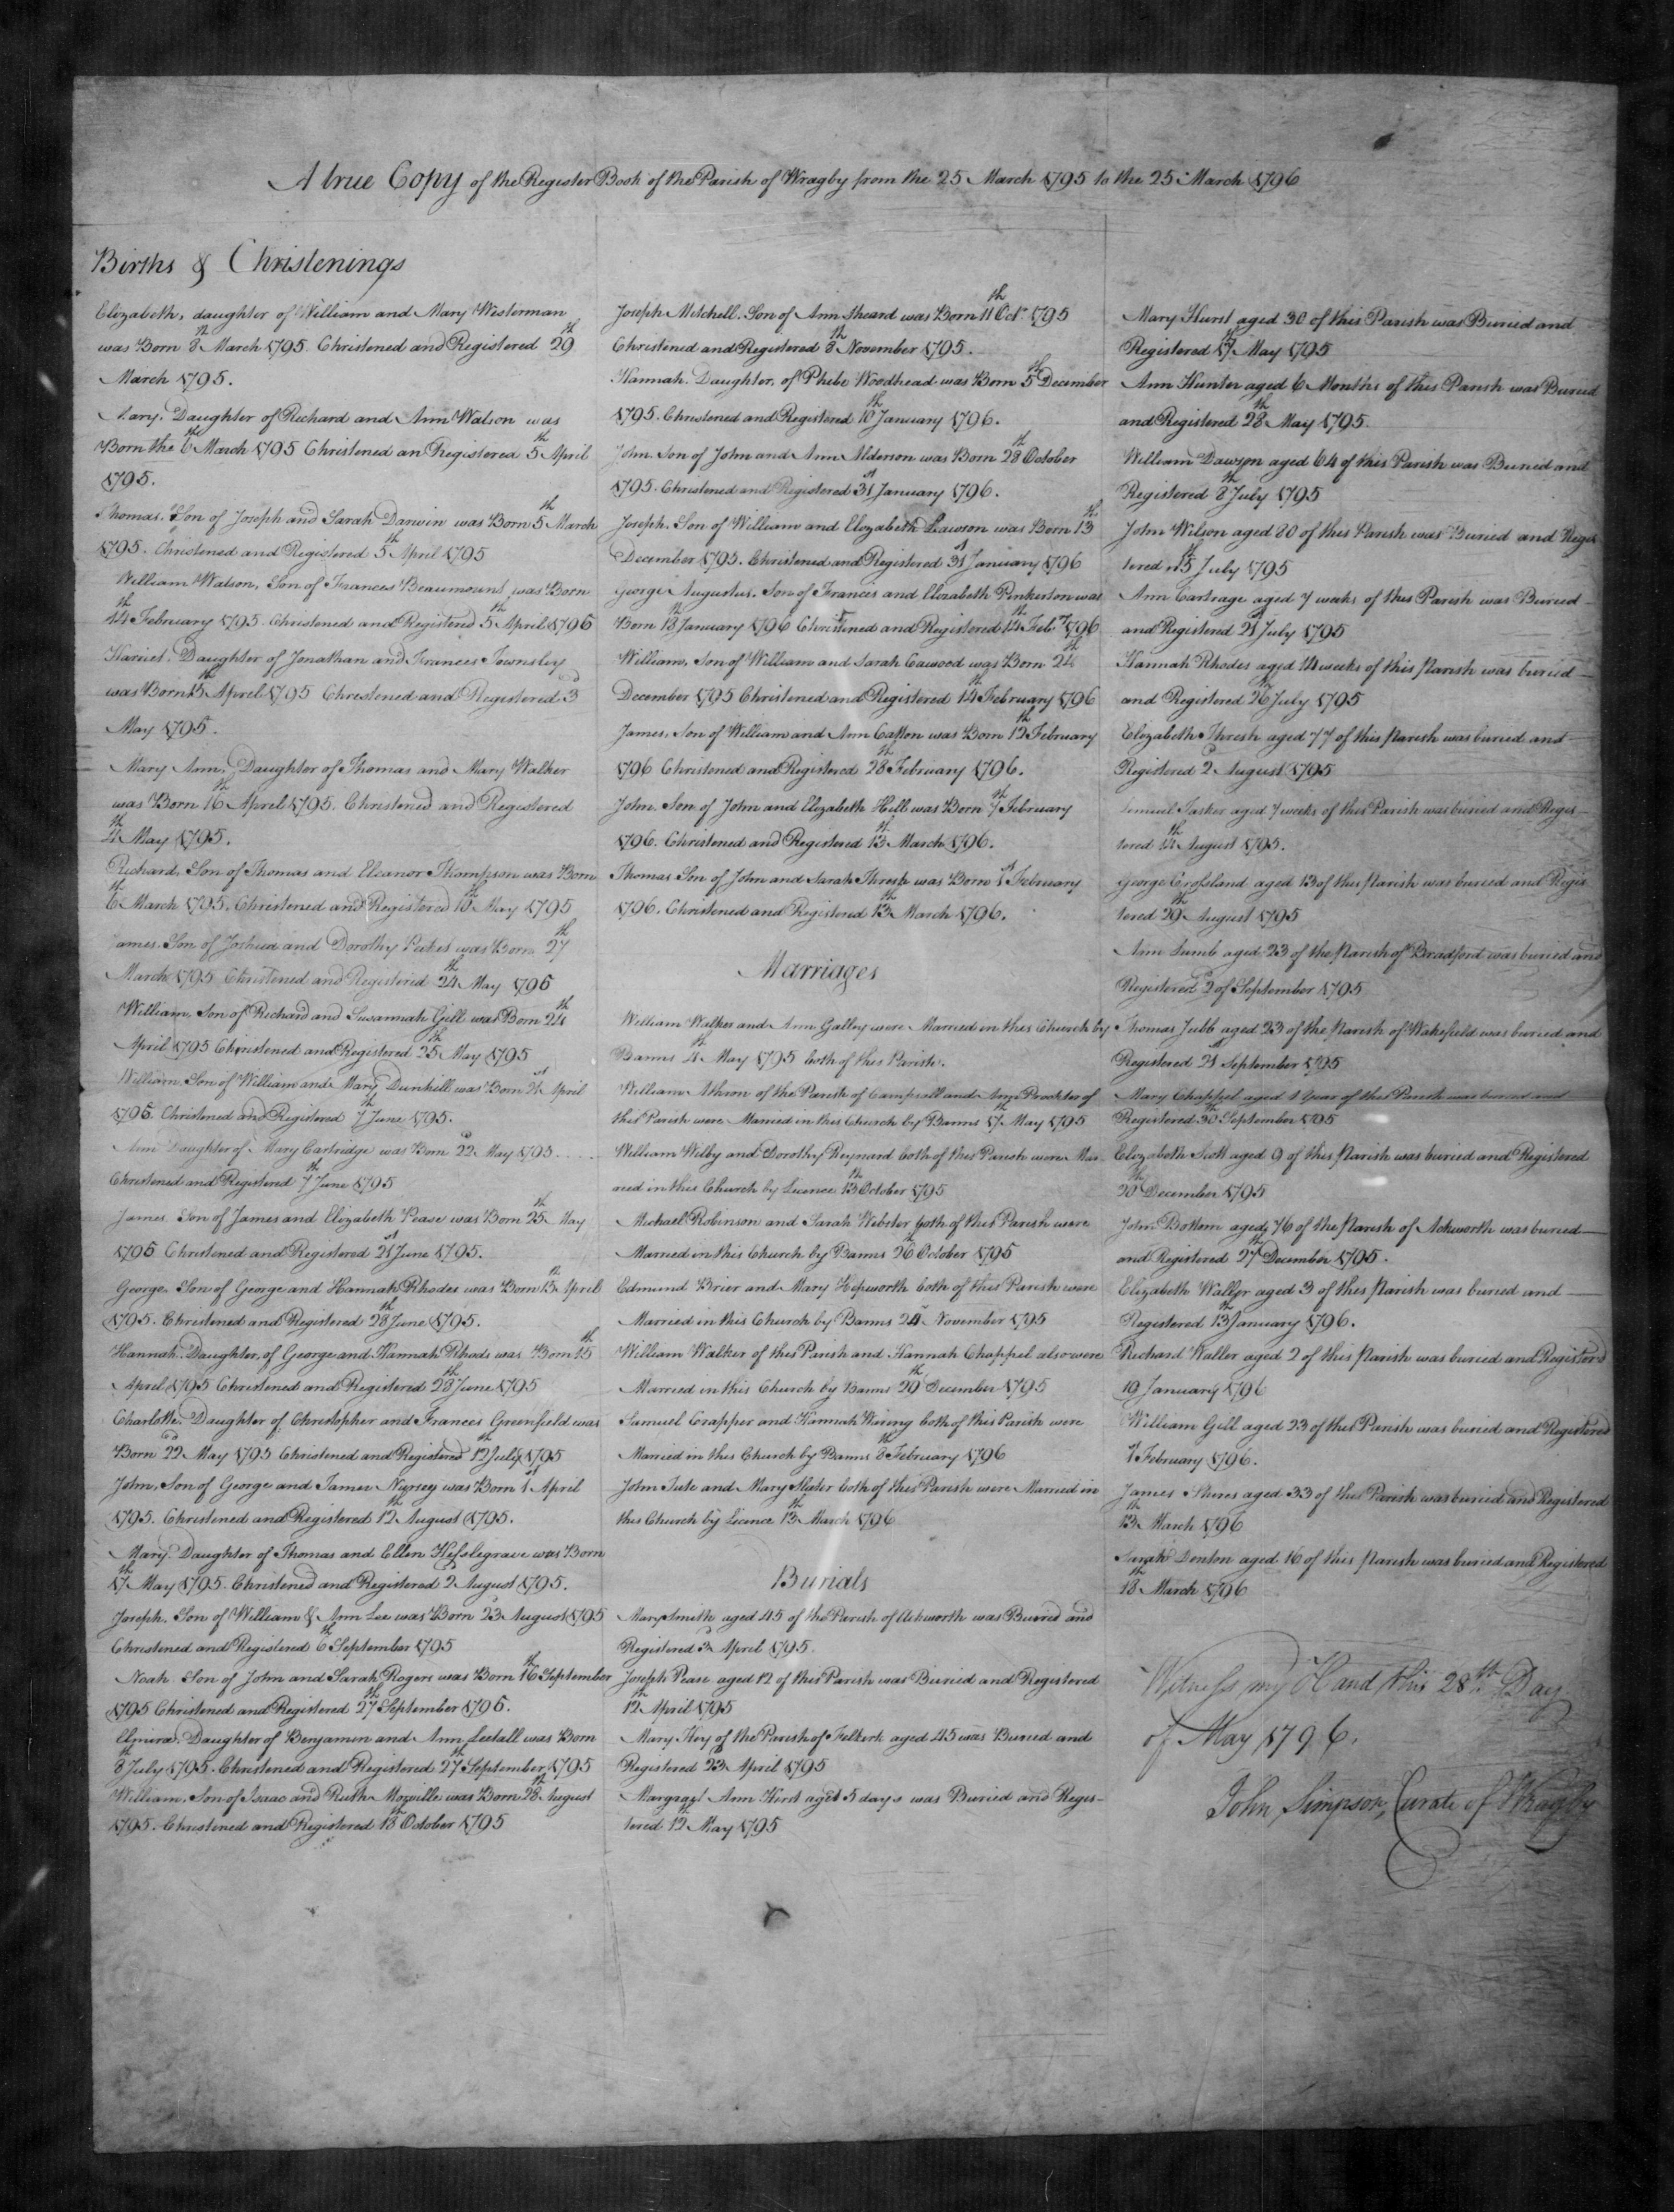 A true Copy of the Register Book of the Parish of Wragby from the 25 March 1795 to the 25 March 1796
Births & Christenings
Elizabeth, daughter of William and Mary Westerman
was Born 8th March 1795. Christened and Registered 29th
March 1795.
Mary, Daughter of Richard and Ann Watson was
Born the 6th March 1795 Christened an Registered 5th April
1795.
Thomas, Son of Joseph and Sarah Darwin was Born 5th March
1795. Christened and Registered 5th April 1795
William Watson, Son of Frances Beaumount, was Born
14th February 1795. Christened and Registered 5th April 1795
Harriet, Daughter of Jonathan and Frances Townsley
was Born 15th April 1795 Christened and Registered 3d
May 1795.
Mary Ann, Daughter of Thomas and Mary Walker
was Born 16th April 1795. Christened and Registered
4th May 1795.
Richard, Son of Thomas and Eleanor Thompson was Born
6th March 1795. Christened and Registered 10th May 1795
James, Son of Joshua and Dorothy was Born 27th
March 1795 Christened and Registered 24th May 1795
William, Son of Richard and Susannah Gill was Born 24th
April 1795 Christened and Registered 25th May 1795
William, Son of William and Mary Dunhill was Born 21st April
1795. Christened and Registered 7th June 1795.
Ann Daughter of Mary Cartridge was Born 22d May 1795
Christened and Registered 7th June 1795
James, Son of James and Elizabeth Pease was Born 25th May
1795 Christened and Registered 21st June 1795.
George, Son of George and Hannah Rhodes was Born 15th April
1795. Christened and Registered 28th June 1795.
Hannah, Daughter, of George and Hannah Rhods was Born 15th
April 1795 Christened and Registered 28th June 1795
Charlotte, Daughter of Christopher and Frances Greenfield was
Born 22d May 1795 Christened and Registered 12th July 1795
John, Son of George and Tamer was Born 1st April
1795. Christened and Registered 12th August 1795.
Mary, Daughter of Thomas and Ellen Hesslegrave was Born
17th May 1795. Christened and Registered 2d August 1795.
Joseph, Son of William & Ann Lee was Born 23d August 1795
Christened and Registered 6th September 1795
Noah Son of John and Sarah Rogers was Born 16th September
1795 Christened and Registered 27th September 1795.
Elmira, Daughter of Benjamin and Ann was Born
8th July 1795. Christened and Registered 27th September 1795
William, Son of Isaac and Ruth was Born 28th August
1795. Christened and Registered 18th October 1795
Joseph Mitchell, Son of Ann Sheard was Born 11th Octr 1795
Christened and Registered 8th November 1795.
Hannah, Daughter, of Phebe Woodhead was Born 5th December
1795. Christened and Registered 10th January 1796.
John, Son of John and Ann Alderson was Born 28th October
1795. Christened and Registered 31st January 1796.
Joseph, Son of William and Elizabeth Lawson was Born 13th
December 1795. Christened and Registered 31st January 1796
George Augustus, Son of Frances and Elizabeth Pinkerton was
Born 18th January 1796 Christened and Registered 14th Feby 1796
William, Son of William and Sarah Cawood was Born 24th
December 1795 Christened and Registered 14th February 1796
James, Son of William and Ann was Born 12th February
1796 Christened and Registered 28th February 1796.
John, Son of John and Elizabeth Hill was Born 7th February
1796. Christened and Registered 13th March 1796.
Thomas Son of John and Sarah Thresh was Born 1st February
1796. Christened and Registered 13th March 1796.
Marriages
William Walker and Ann Galley were Married in this Church by
Banns 4th May 1795 both of this Parish.
William Athron of the Parish of Campsall and Ann Prockter of
this Parish were Married in this Church by Banns 17th May 1795
William Wilby and Dorothy Reynard both of this Parish were Mar
ried in this Church by Licence 13th October 1795
Michael Robinson and Sarah Webster both of this Parish were
Married in this Church by Banns 26th October 1795
Edmund Brier and Mary Hepworth both of this Parish were
Married in this Church by Banns 24th November 1795
William Walker of this Parish and Hannah Chappel also were
Married in this Church by Banns 29th December 1795
Samuel Crapper and Hannah Waring both of this Parish were
Married in this Church by Banns 8th February 1796
John Tute and Mary Slater both of this Parish were Married in
this Church by Licence 13th March 1796
Burials
Mary Smith aged 45 of the Parish of Ackworth was Buried and
Registered 3d April 1795.
Joseph Pease aged 12 of this Parish was Buried and Registered
12th April 1795
Mary Hey of the Parish of Felkirk aged 45 was Buried and
Registered 23d April 1795
Margagt Ann Hirst aged 5 days was Buried and Regis-
tered 12th May 1795
Mary Hurst aged 30 of this Parish was Buried and
Registered 17th May 1795
Ann Hunter aged 6 Months of this Parish was Buried
and Registered 28th May 1795.
William Dawson aged 64 of this Parish was Buried and
Registered 8th July 1795
John Wilson aged 80 of this Parish was Buried and Regis
tered 15th July 1795
Ann Cartrage aged 7 weeks of this Parish was Buried
and Registered 21st July 1795
Hannah Rhodes aged 14 weeks of this Parish was buried
and Registered 26th July 1795
Elizabeth Thresh aged 77 of this Parish was buried and
Registered 2d August 1795
Lemuel Tasker aged 7 weeks of this Parish was buried and Regis
tered 14th August 1795.
George Crossland aged 13 of this Parish was buried and Regis
tered 29th August 1795
Ann Lumb aged 23 of the Parish of Bradford was buried and
Registered 2d of September 1795
Thomas Jubb aged 23 of the Parish of Wakefield was buried and
Registered 21st September 1795
Mary Chappel aged 1 Year of this Parish was buried and
Registered 30th September 1795
Elizabeth Scott aged 9 of this Parish was buried and Registered
20th December 1795
John Bottom aged 76 of the Parish of Ackworth was buried
and Registered 27th December 1795.
Elizabeth Waller aged 3 of this Parish was buried and
Registered 13th January 1796.
Richard Waller aged 2 of this Parish was buried and Register'd
19 January 1796
William Gill aged 23 of this Parish was buried and Registered
7 February 1796.
James Shires aged 33 of this Parish was buried and Registered
13th March 1796
Sarah Denton aged 16 of this Parish was buried and Registered
18th March 1796
Witness my Hand this 28th Day
of May 1796.
John Simpson, Curate of Wragby